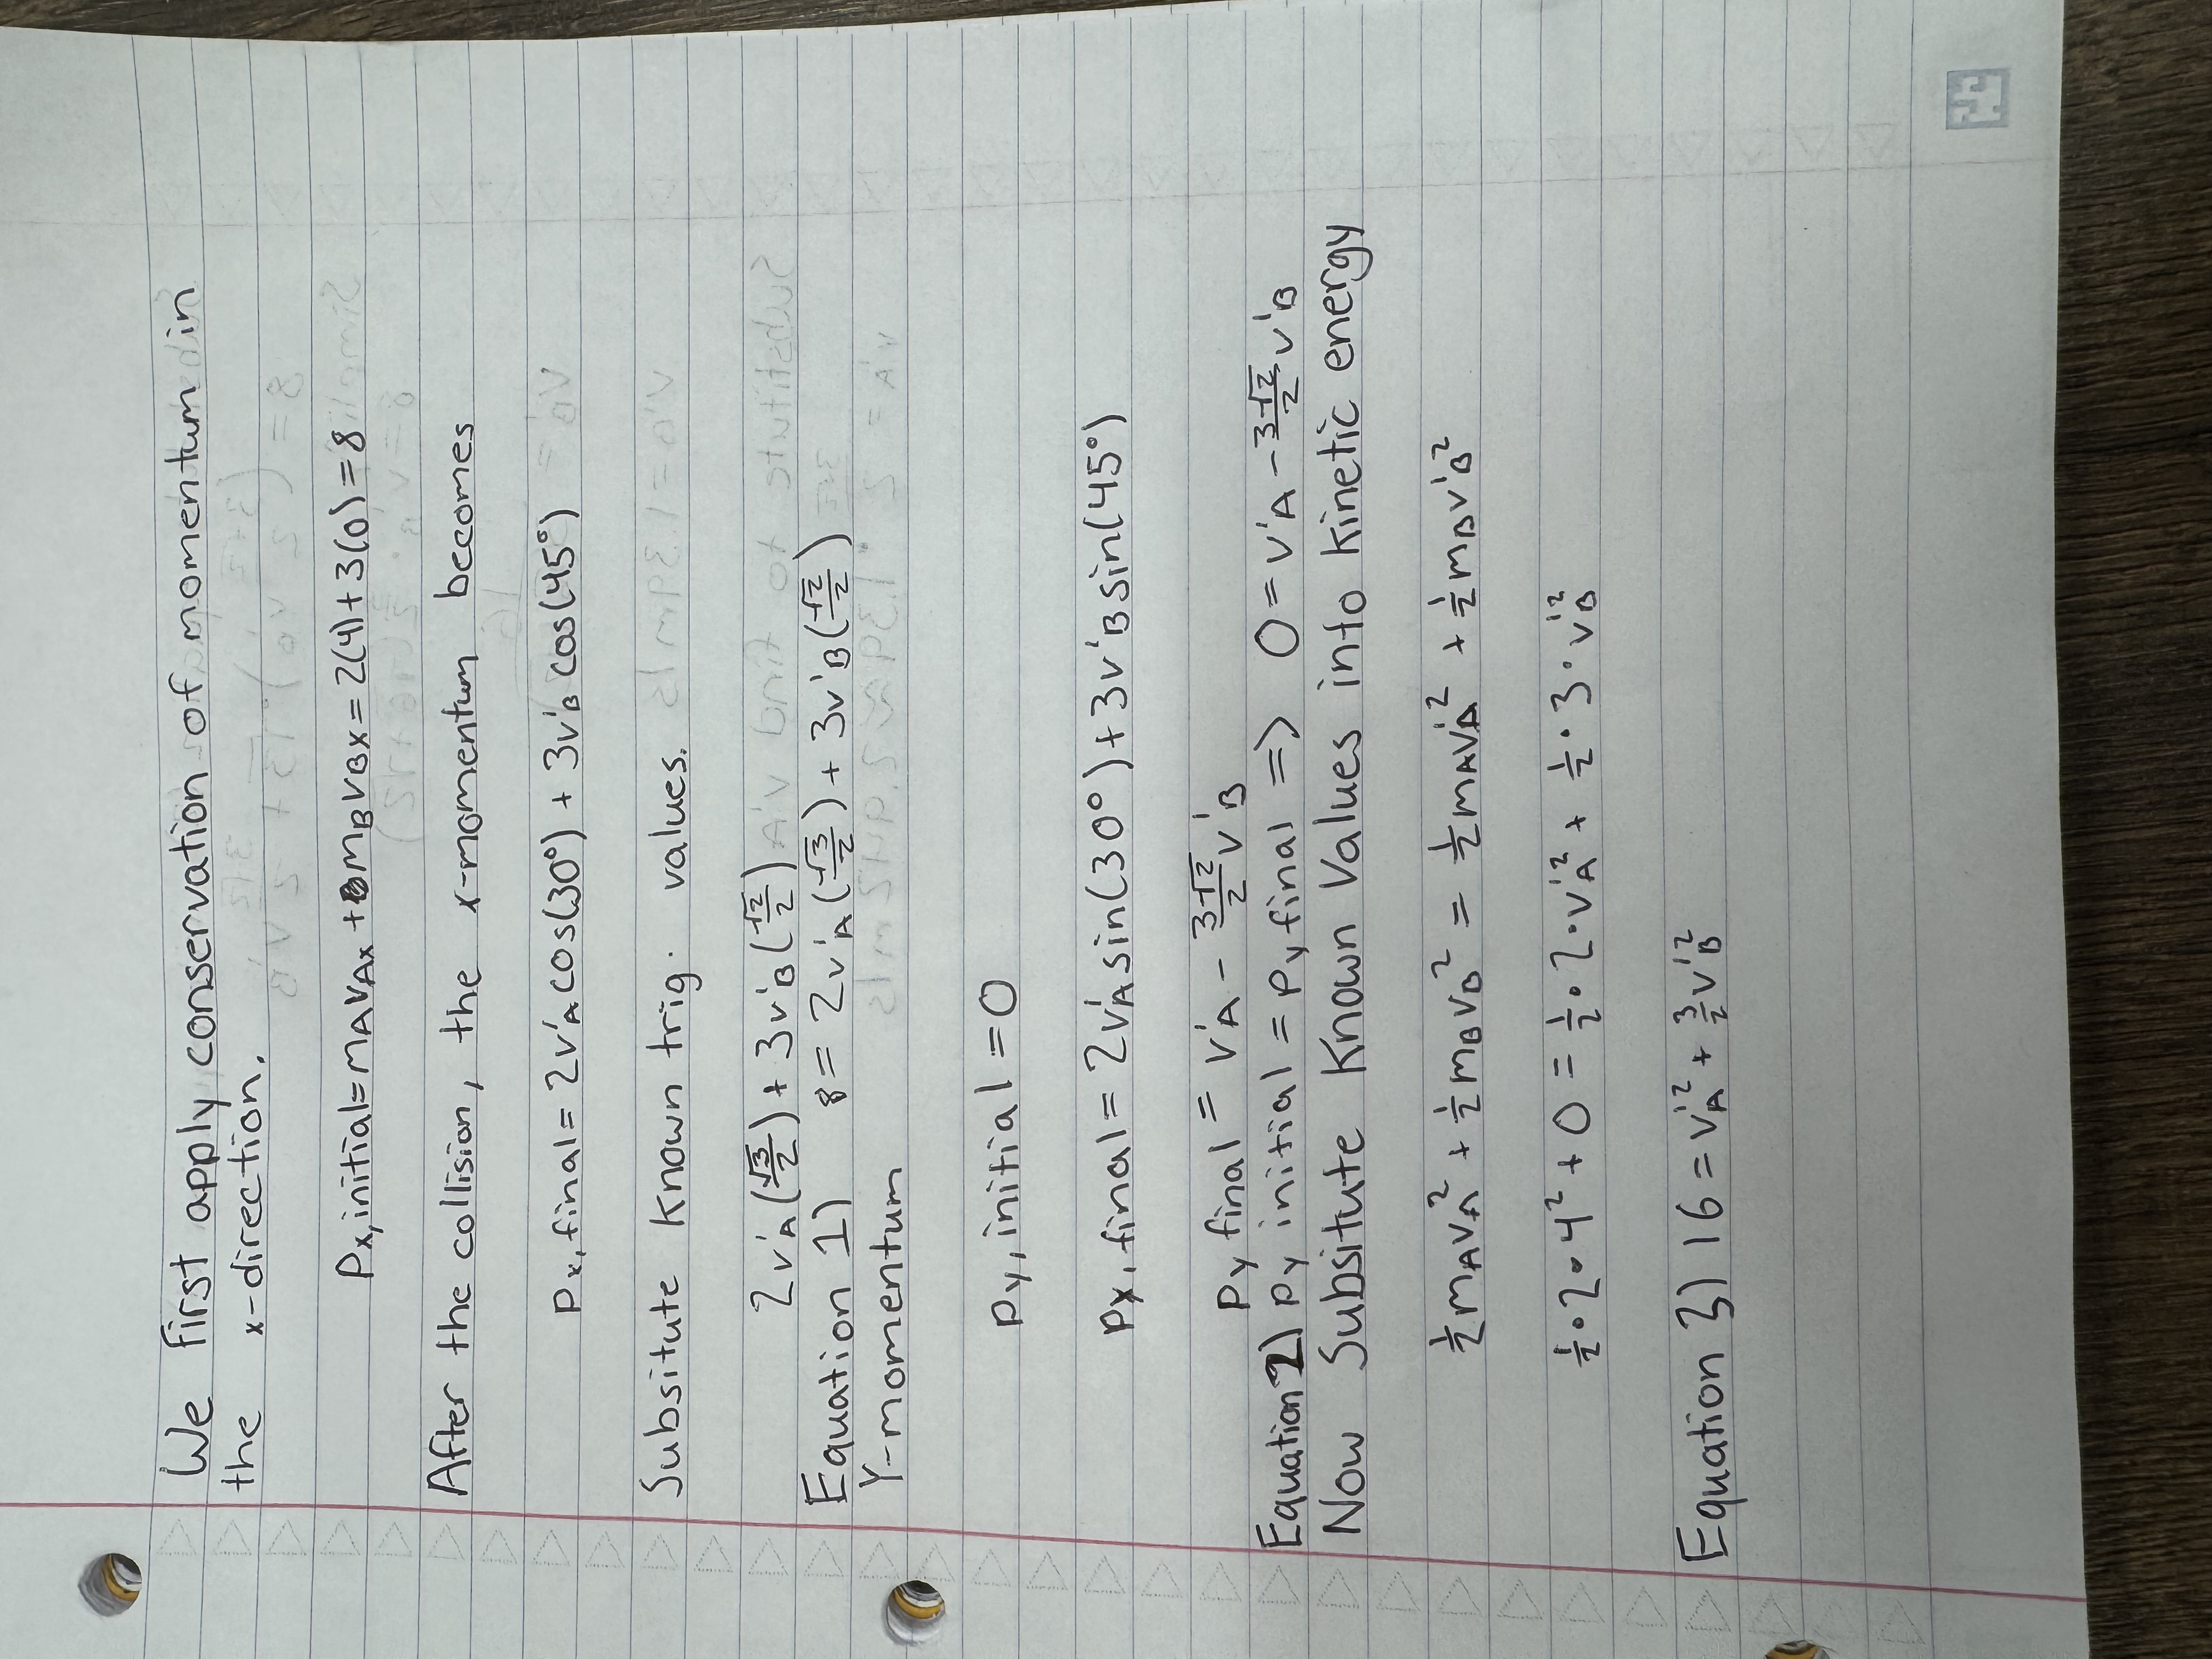 We first apply conservation of momentum in
the x-direction.
Px,initial=mAvAx+mBvBx=2(4)+3(0)=8
After the collision, the x-momentum becomes
Px,final=2v'Acos(30°)+3v'Bcos(45°)
Subsitute known trig. values.
2v'A(√3/2)+3v'B(√2/2)
Equation 1) 8=2v'A(√3/2)+3v'B(√2/2)
Y-momentum
Py,initial=0
Py,final=2v'Asin(30°)+3v'Bsin(45°)
Py final=v'A-3√2/2 v'B
Equation 2) Py initial=Py final => 0=v'A-3√2/2 v'B
Now Subsitute Known Values into kinetic energy
½mAvA²+½mBvB²=½mAv'A²+½mBv'B²
½·2·4²+0=½·2·v'A²+½·3·v'B²
Equation 3) 16=v'A²+3/2v'B²